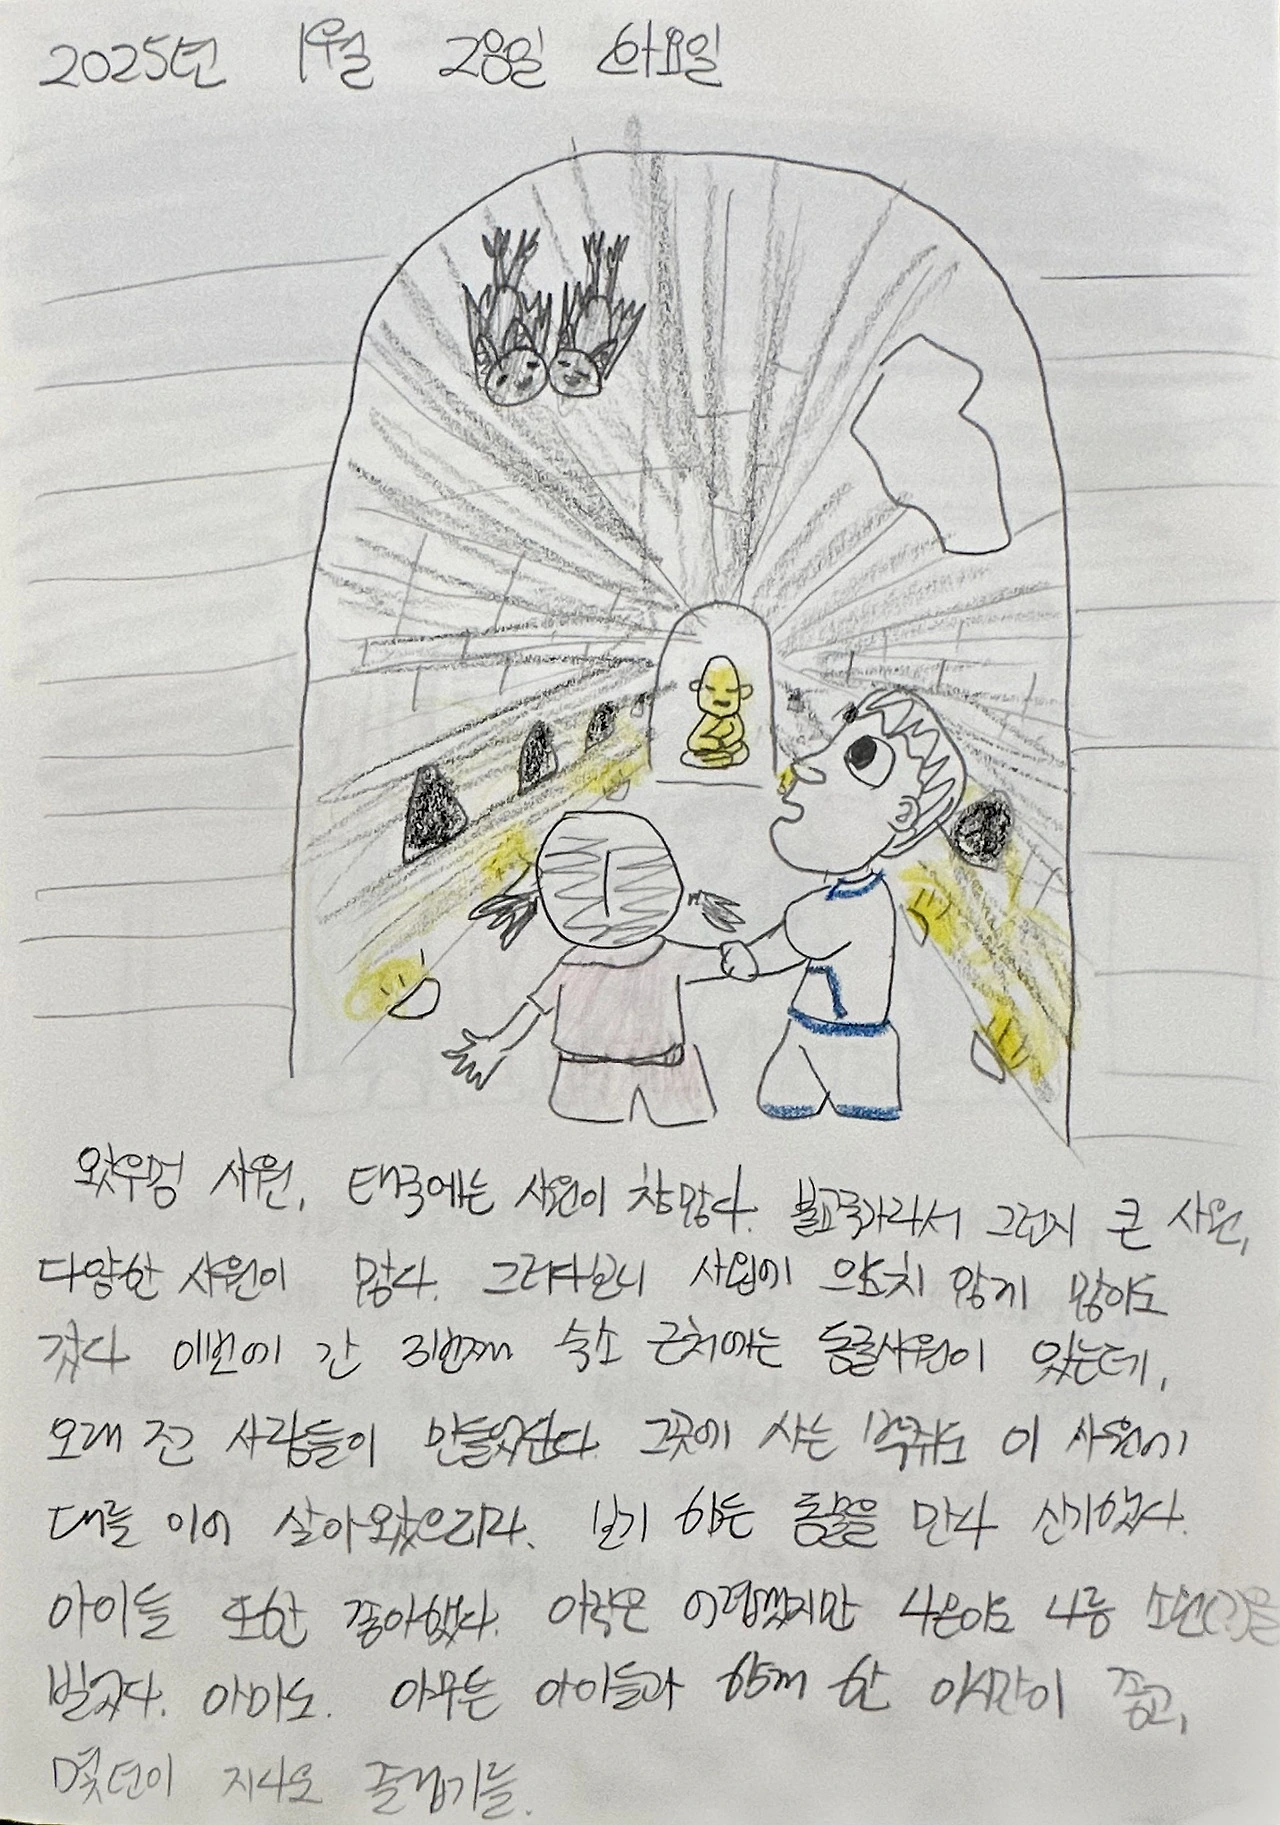 2025년 1월 28일 화요일
왓우멍 사원, 태국에는 사원이 참많다. 불교국가라서 그런지 큰 사원,
다양한 사원이 많다. 그러다보니 사원에 의도치 않게 많이도
갔다 이번에 간 3번째 숙소 근처에는 동굴사원이 있는데,
오래 전 사람들이 만들었단다. 그곳에 사는 박쥐도 이 사원에
대를 이어 살아왔으리라. 보기 힘든 동물을 만나 신기했다.
아이들 또한 좋아했다. 아직은 어렵겠지만 나은이도 나름 소원(?)을
빌었다. 아마도. 아무튼 아이들과 함께 한 이시간이 좋고,
몇년이 지나도 즐겁기를.